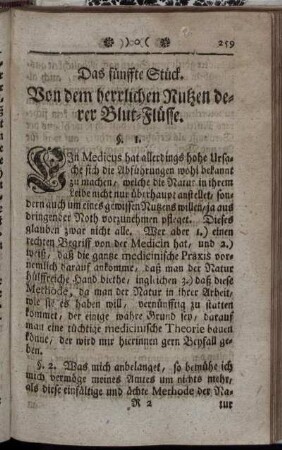 )o(
259
Das fünffte Stück.
Von dem herrlichen Nutzen de-
rer Blut-Flüsse.
§. 1.
Ein Medicus hat allerdings hohe Ursa-
che sich die Abführungen wohl bekannt
zu machen, welche die Natur in ihrem
Leibe nicht nur überhaupt anstellet, son-
dern auch um eines gewissen Nutzens willen, ja aus
dringender Noth vorzunehmen pfleget. Dieses
glauben zwar nicht alle. Wer aber 1.) einen
rechten Begriff von der Medicin hat, und 2.)
weiß, daß die gantze medicinische Praxis vor-
nemlich darauf ankomme, daß man der Natur
hülffreiche Hand biethe, ingleichen 3.) daß diese
Methode, da man der Natur in ihrer Arbeit,
wie sie es haben will, vernünfftig zu statten
kommet, der einige wahre Grund sey, darauf
man eine tüchtige medicinische Theorie bauen
könne, der wird mir hierinnen gern Beyfall ge-
ben.
§. 2. Was mich anbelanget, so bemühe ich
mich vermöge meines Amtes um nichts mehr,
als diese einfältige und ächte Methode der Na-
R 2
tur